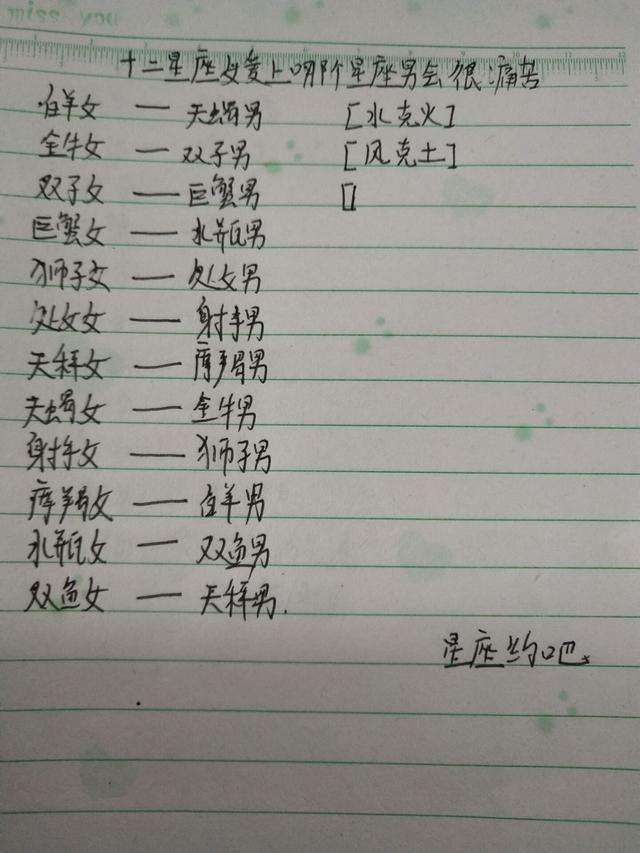 十二星座女爱上哪个星座男会很痛苦
白羊女 — 天蝎男 [水克火]
金牛女 — 双子男 [风克土]
双子女 — 巨蟹男 []
巨蟹女 — 水瓶男
狮子女 — 处女男
处女女 — 射手男
天秤女 — 摩羯男
天蝎女 — 金牛男
射手女 — 狮子男
摩羯女 — 白羊男
水瓶女 — 双鱼男
双鱼女 — 天秤男.
星座约吧